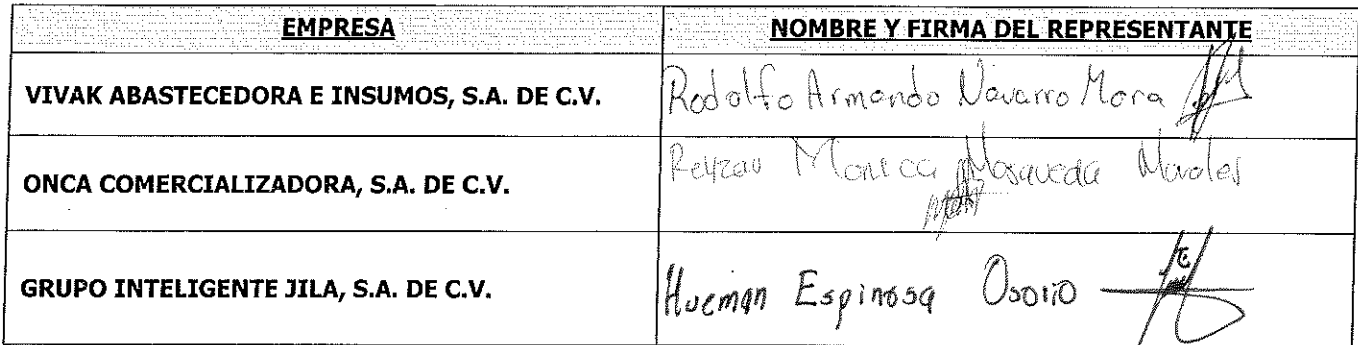 EMPRESA NOMBRE Y FIRMA DEL REPRESENTANTE
VIVAK ABASTECEDORA E INSUMOS, S.A. DE C.V. Rodolfo Armando Navarro Mora
ONCA COMERCIALIZADORA, S.A. DE C.V. Monica Mosqueda Morales
GRUPO INTELIGENTE JILA, S.A. DE C.V. Hueman Espinosa Osorio